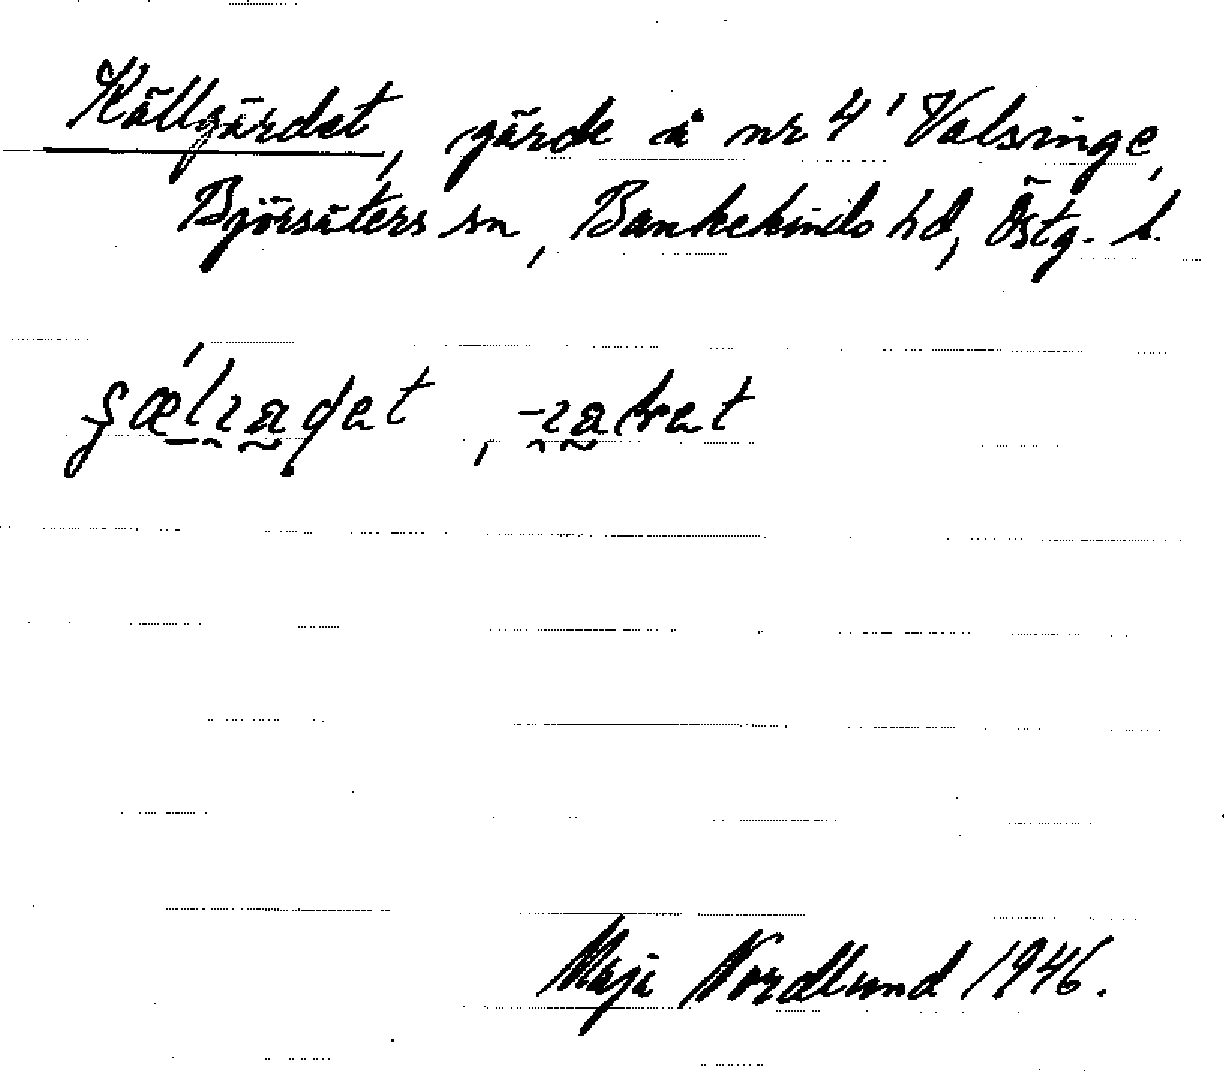 Källgärdet, gärde å nr 4 Valsvinge,
Björsäters sn, Bankekinds hd, Östg. l.
Maja Nordlund 1946.